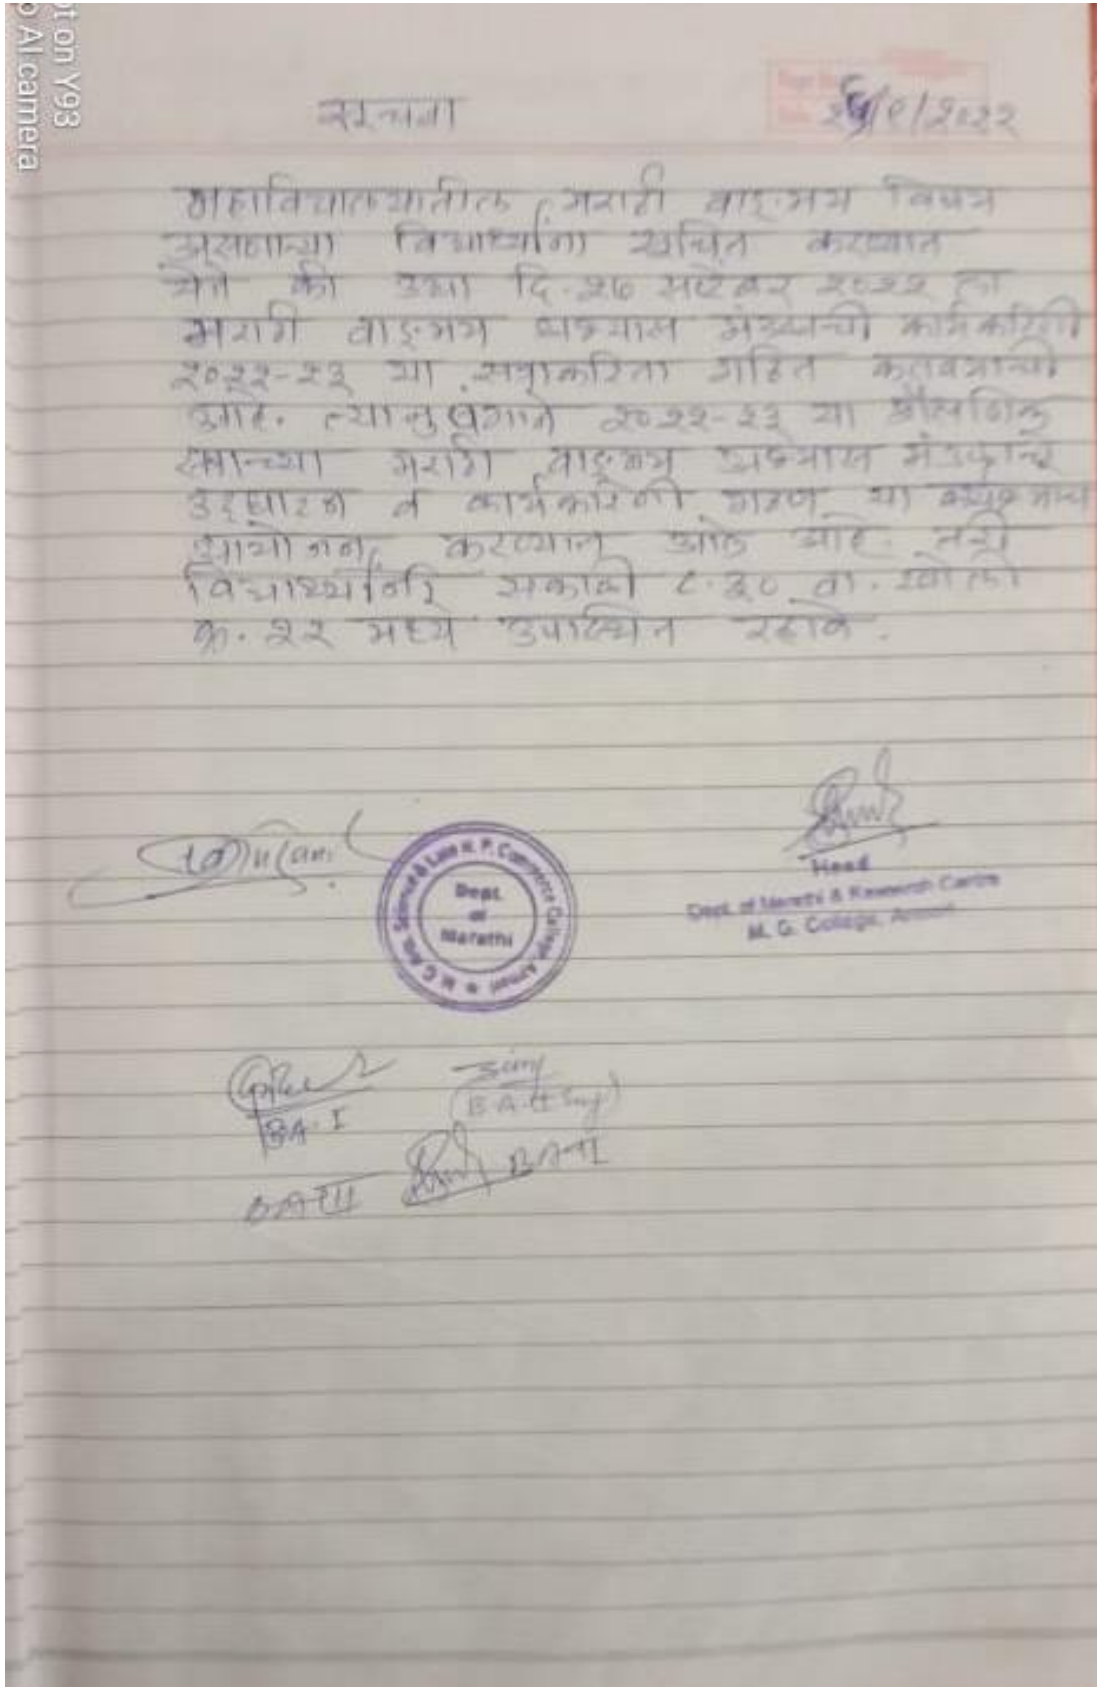 ot on Y93
AI camera
सूचना
२६/९/२०२२
महाविद्यालयातील मराठी वाङ्मय विषय
असणाऱ्या विद्यार्थ्यांना सूचित करण्यात
येते की उद्या दि. २७ सप्टेंबर २०२२ ला
मराठी वाङ्मय अभ्यास मंडळाची कार्यकारिणी
२०२२-२३ या सत्राकरिता गठित करावयाची
आहे. त्यानुषंगाने २०२२-२३ या शैक्षणिक
सत्राच्या मराठी वाङ्मय अभ्यास मंडळाचे
उद्घाटन व कार्यकारिणी गठण या
आयोजन करण्यात आले आहे. तरी
विद्यार्थ्यांनी सकाळी ८.३० वा. खोली
क्र. २२ मध्ये उपस्थित रहावे.
Head
Dept. of Marathi & Research Centre
M. G. College, Armori
M. G. Arts, Science & Late N. P. Commerce College, Armori
Dept.
of
Marathi
BA. I
B.A.II
BA III
BA II